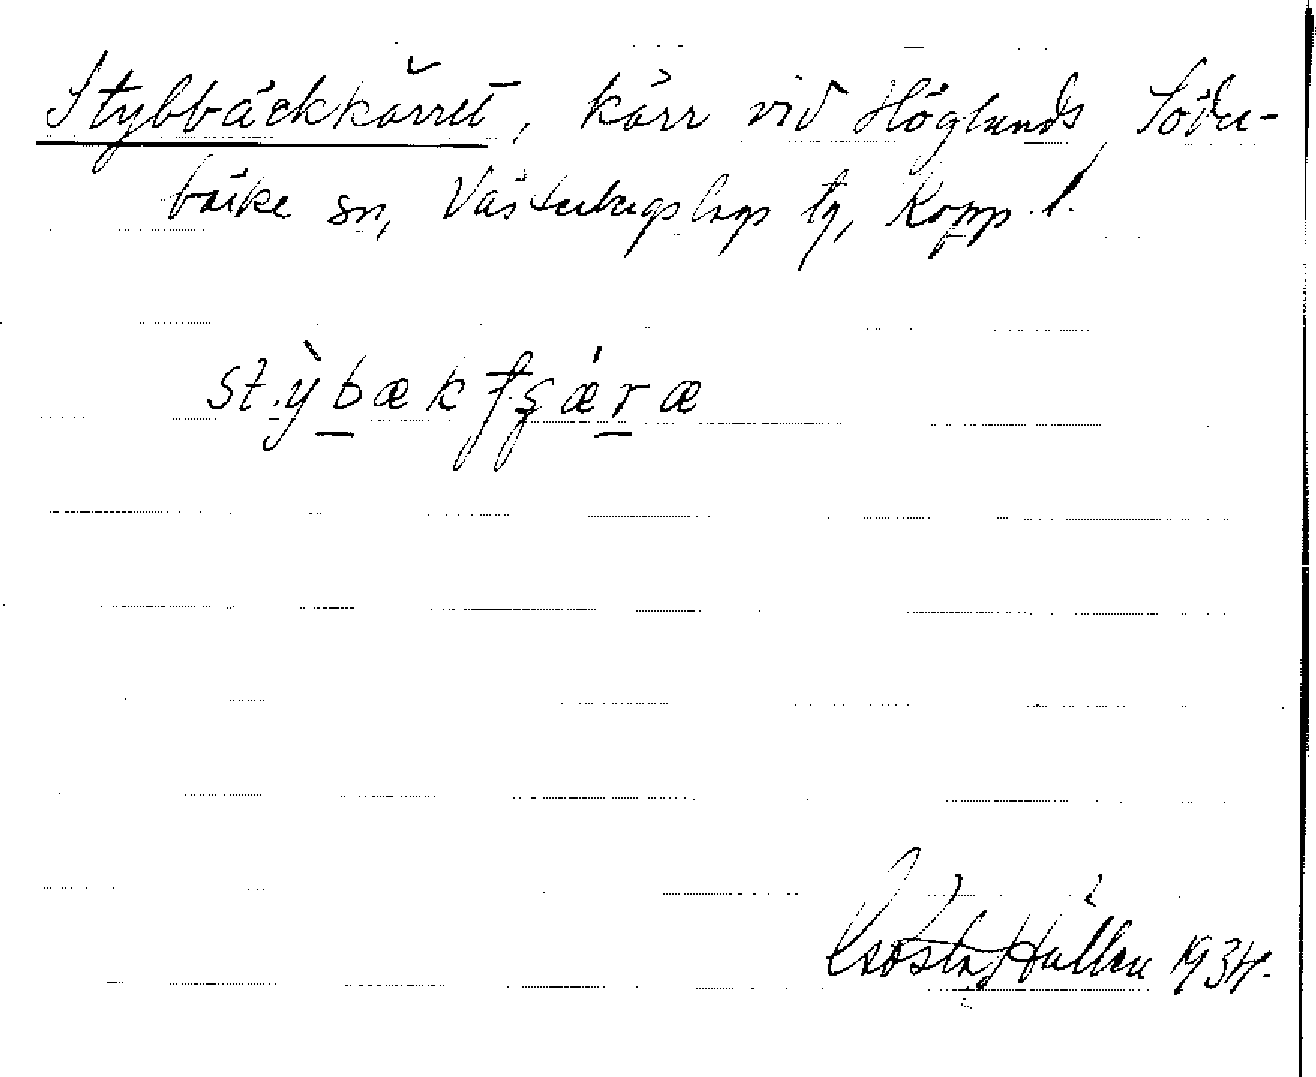 Stybbäckkärret, kärr vid Höglunds, Söder-
bärke sn, Västerbergslags tg, Kopp. l.
st.ỳbækʃʂǽræ
Gösta Hallén 1934.